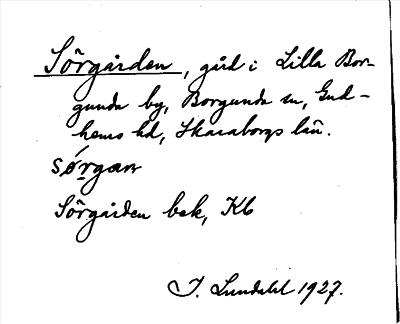 Sörgården, gård i Lilla Bor-
gunda by, Borgunda sn, Gud-
hems hd, Skaraborgs län.
sörgan
Sörgården bek, Kb
I. Lundahl 1927.